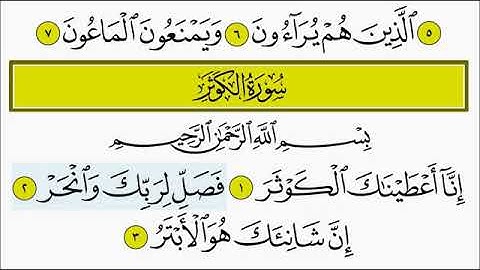 ٥ ٱلَّذِينَ هُمْ يُرَآءُونَ ٦ وَيَمْنَعُونَ ٱلْمَاعُونَ ٧
سُورَةُ الكَوْثَر
بِسْمِ ٱللَّهِ ٱلرَّحْمَٰنِ ٱلرَّحِيمِ
إِنَّآ أَعْطَيْنَٰكَ ٱلْكَوْثَرَ ١ فَصَلِّ لِرَبِّكَ وَٱنْحَرْ ٢
إِنَّ شَانِئَكَ هُوَ ٱلْأَبْتَرُ ٣